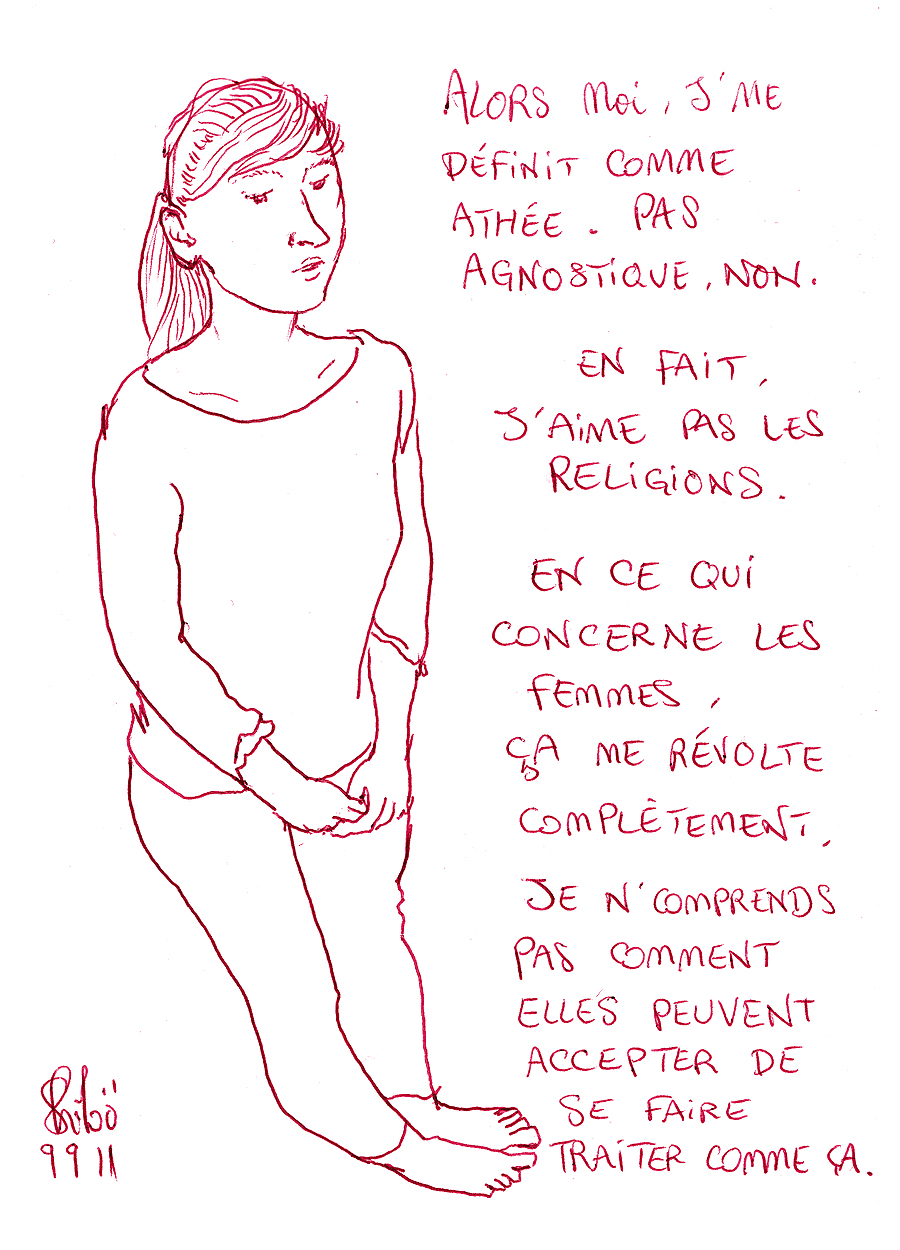 ALORS MOI, J'ME
DÉFINIT COMME
ATHÉE. PAS
AGNOSTIQUE, NON.
EN FAIT,
J'AIME PAS LES
RELIGIONS.
EN CE QUI
CONCERNE LES
FEMMES,
ÇA ME RÉVOLTE
COMPLÈTEMENT,
JE N'COMPRENDS
PAS COMMENT
ELLES PEUVENT
ACCEPTER DE
SE FAIRE
TRAITER COMME ÇA.
9 9 11